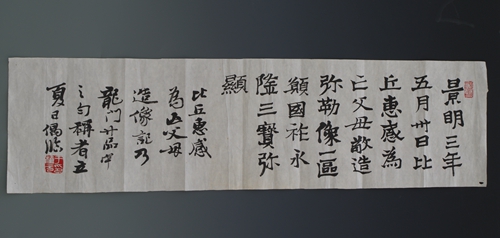 景明三年
五月卅日比
丘惠感為
亡父母敬造
弥勒像一區
願國祚永
隆三寶弥
顯
比丘惠感
為亡父母
造像記乃
龍門廿品中
之句稱者五
夏日偶臨